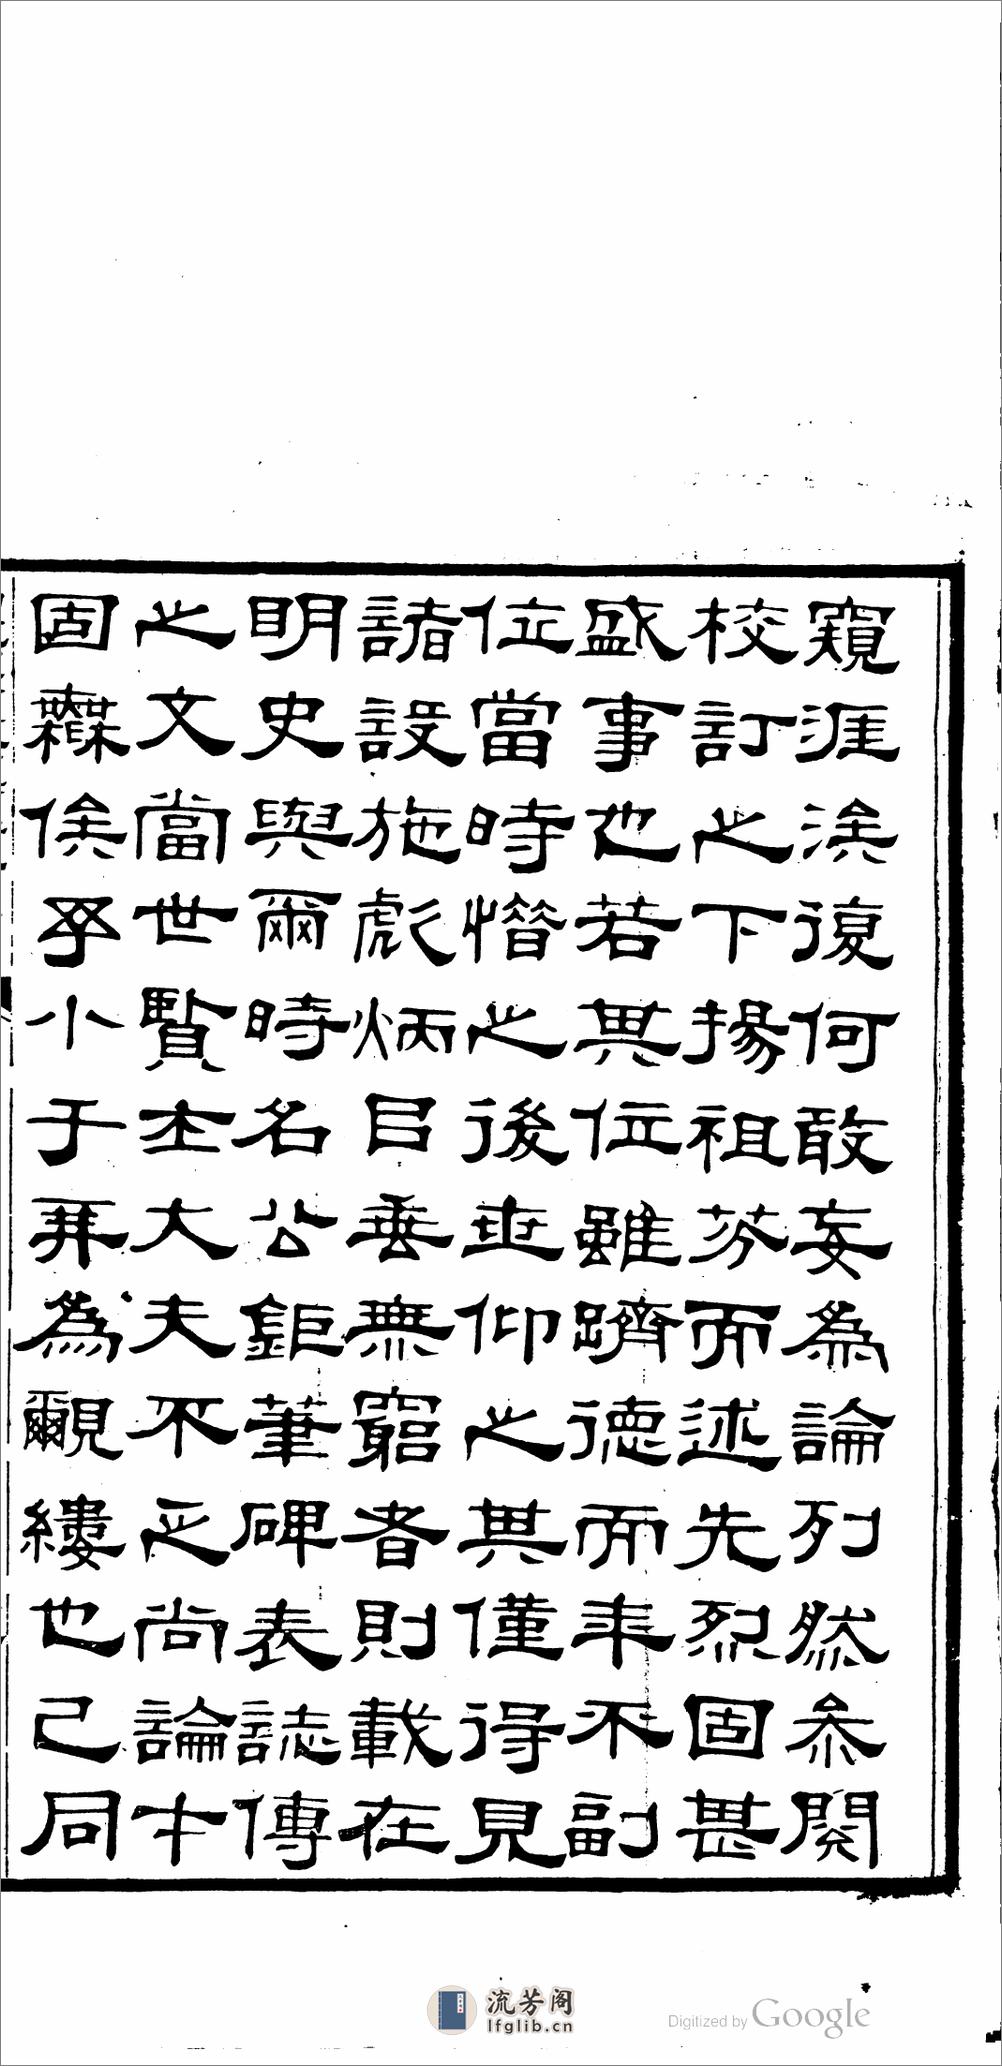 窺涯涘復何敢妄為論列然叅閱
校訂之下揚祖芬而述先烈固甚
盛事也若其位雖躋德而年不副
位當時惜之後世仰之其僅得見
諸設施彪炳㠯垂無窮者則載在
明史與爾時名公鉅筆碑表誌傳
之文當世賢士大夫不乏尚論中
固無俟乎小于再為覼縷也己同
流芳阁
lfglib.cn
Digitized by Google